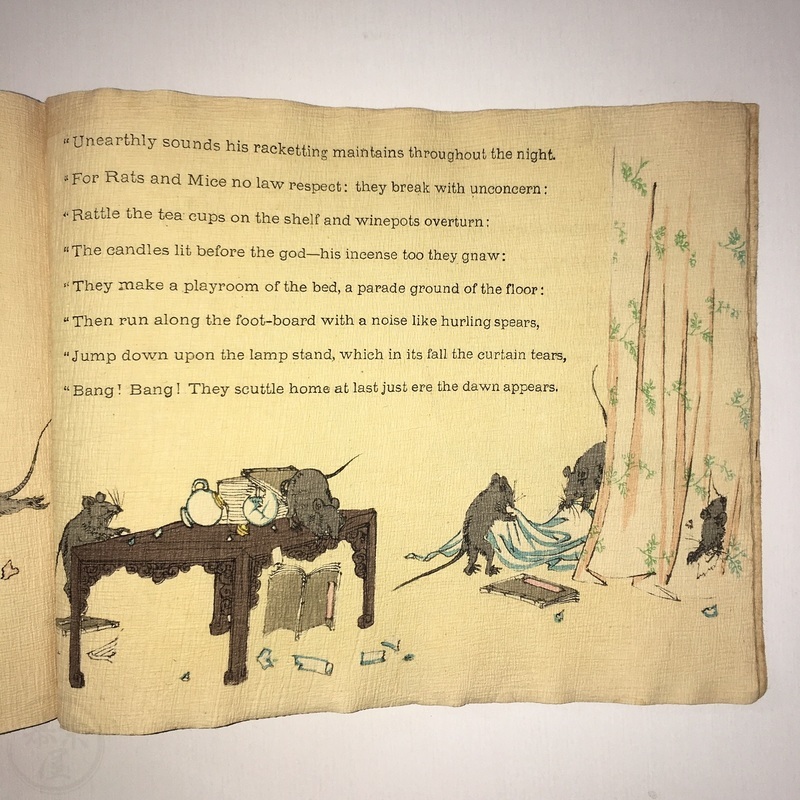 “Unearthly sounds his racketting maintains throughout the night.
“For Rats and Mice no law respect: they break with unconcern:
“Rattle the tea cups on the shelf and winepots overturn:
“The candles lit before the god—his incense too they gnaw:
“They make a playroom of the bed, a parade ground of the floor:
“Then run along the foot-board with a noise like hurling spears,
“Jump down upon the lamp stand, which in its fall the curtain tears,
“Bang! Bang! They scuttle home at last just ere the dawn appears.